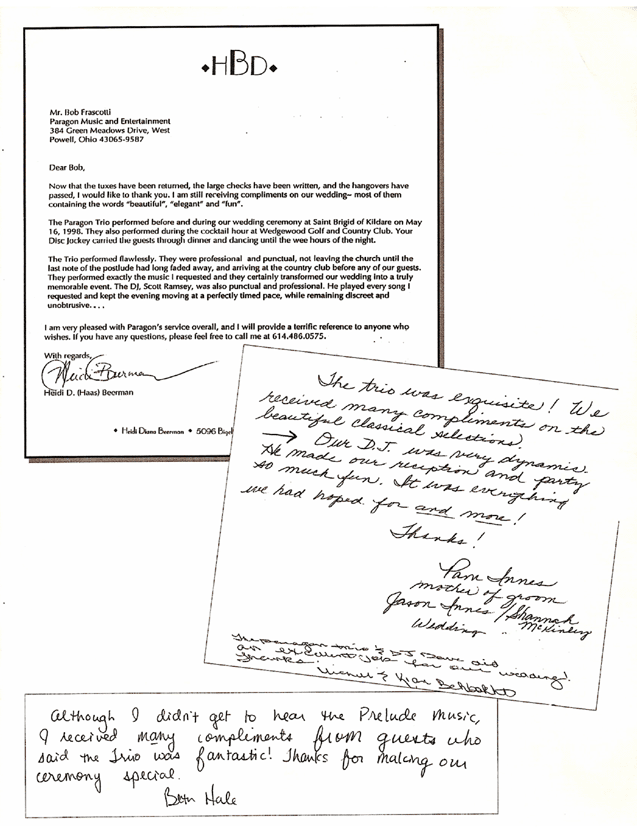 HBD
Mr. Bob Frascotti
Paragon Music and Entertainment
384 Green Meadows Drive, West
Powell, Ohio 43065-9587
Dear Bob,
Now that the tuxes have been returned, the large checks have been written, and the hangovers have
passed, I would like to thank you. I am still receiving compliments on our wedding– most of them
containing the words "beautiful", "elegant" and "fun".
The Paragon Trio performed before and during our wedding ceremony at Saint Brigid of Kildare on May
16, 1998. They also performed during the cocktail hour at Wedgewood Golf and Country Club. Your
Disc Jockey carried the guests through dinner and dancing until the wee hours of the night.
The Trio performed flawlessly. They were professional and punctual, not leaving the church until the
last note of the postlude had long faded away, and arriving at the country club before any of our guests.
They performed exactly the music I requested and they certainly transformed our wedding into a truly
memorable event. The DJ, Scott Ramsey, was also punctual and professional. He played every song I
requested and kept the evening moving at a perfectly timed pace, while remaining discreet and
unobtrusive....
I am very pleased with Paragon's service overall, and I will provide a terrific reference to anyone who
wishes. If you have any questions, please feel free to call me at 614.486.0575.
With regards,
Heidi Beerman
Heidi D. (Haas) Beerman
◆ Heidi Diana Beerman ◆ 5096
The trio was exquisite! We
received many compliments on the
beautiful classical selections.
→ Our D.J. was very dynamic.
He made our reception and party
so much fun. It was everything
we had hoped for and more!
Thanks!
Pam Innes
mother of groom
Jason Innes / Shannah
McKinley
Wedding
The paragon trio & DJ Dave did
an excellent job for our wedding!
Thanks!
Although I didn't get to hear the Prelude music,
I received many compliments from guests who
said the Trio was fantastic! Thanks for making our
ceremony special.
Beth Hale